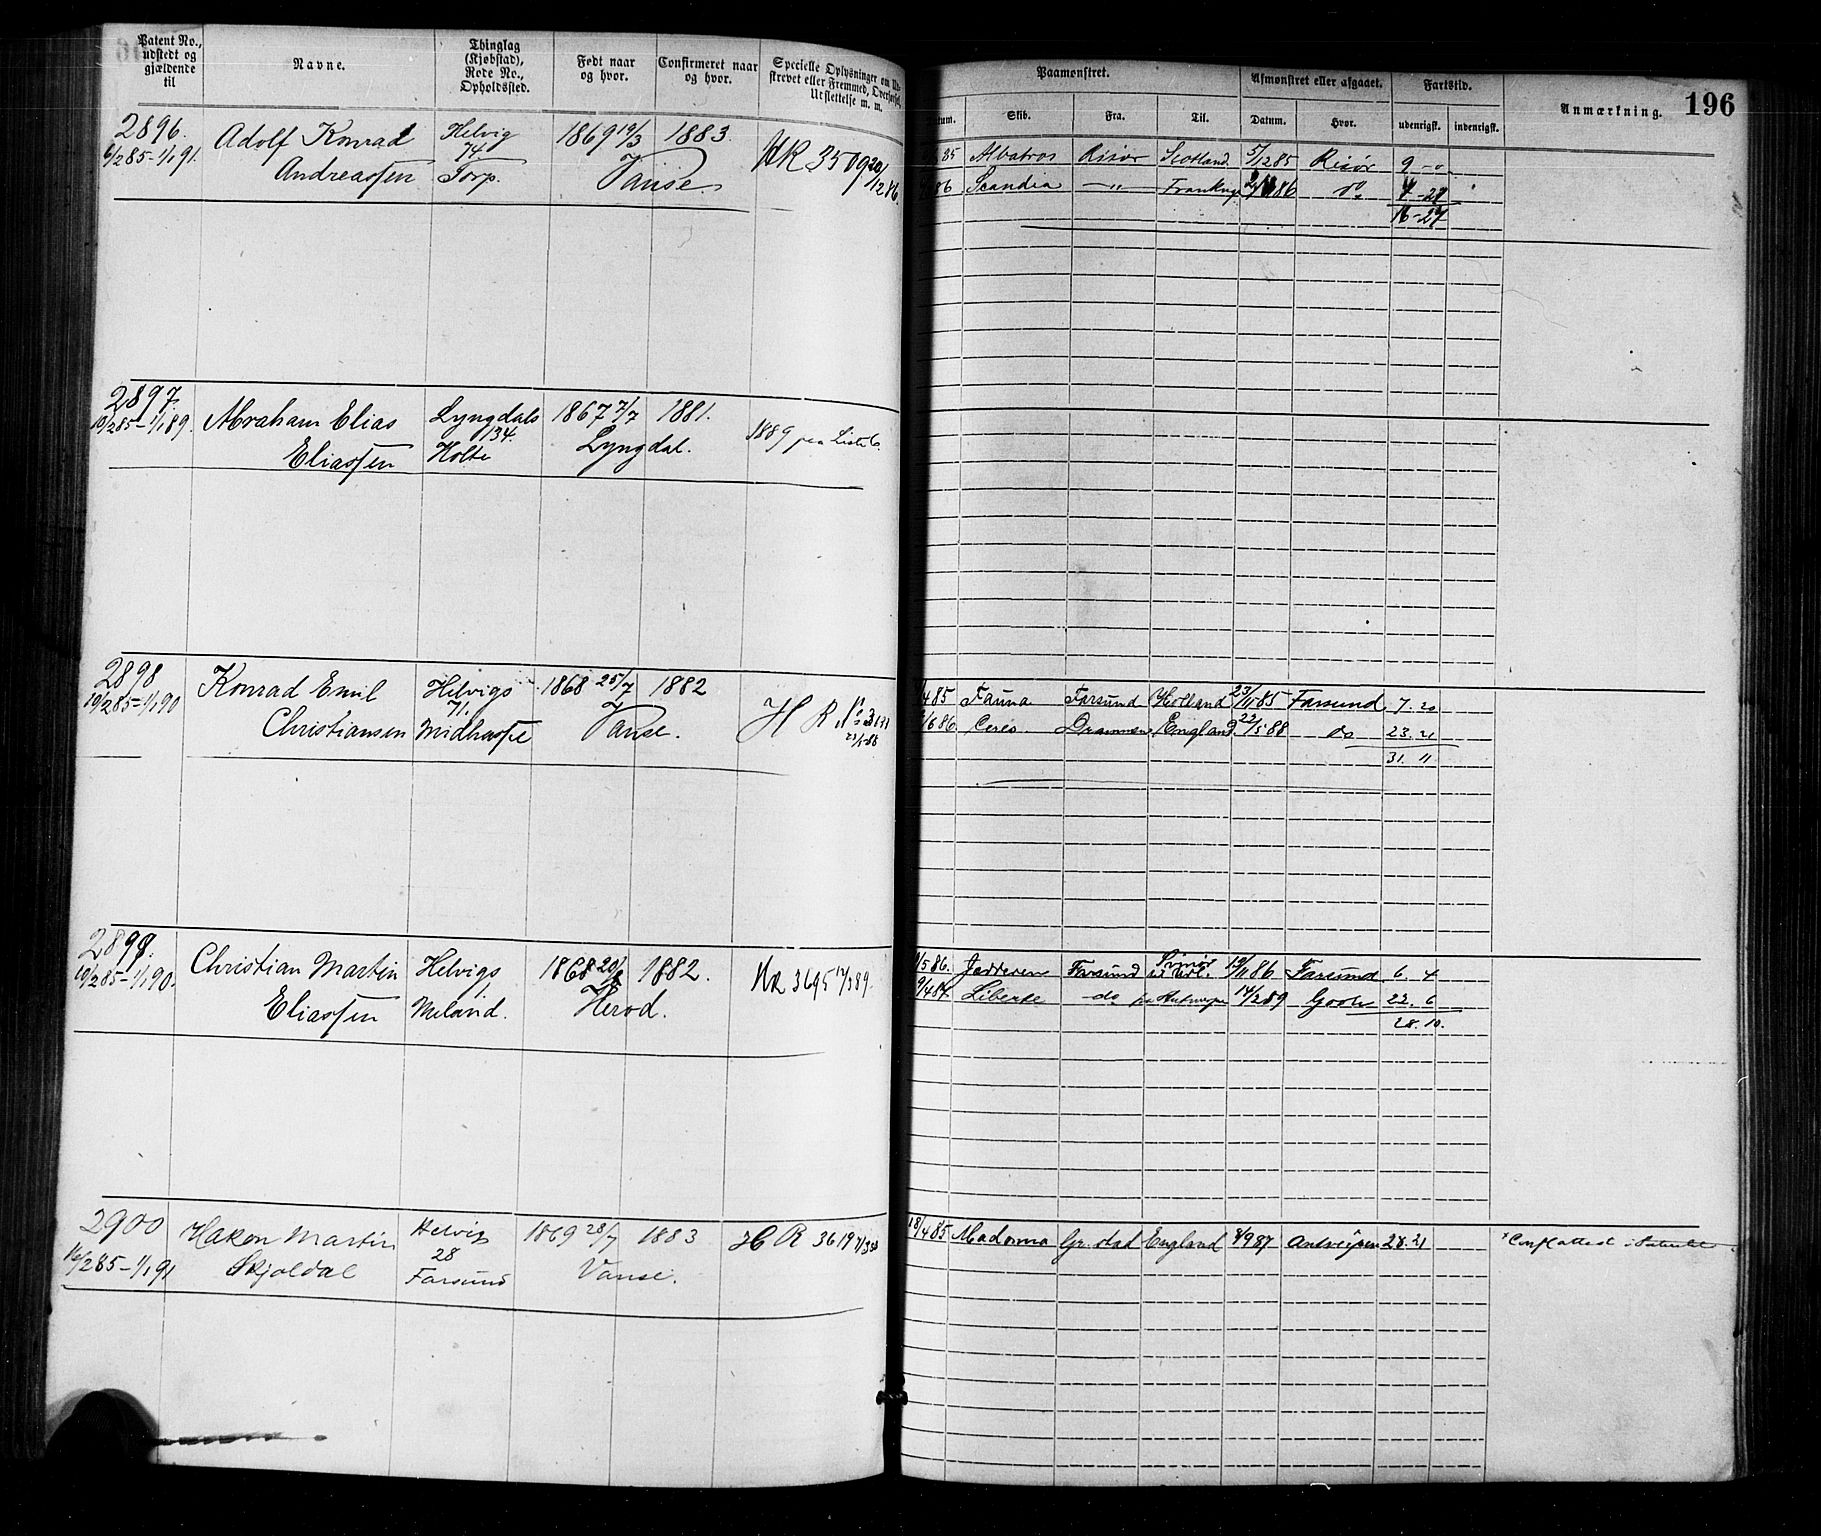 Patent No.,
udstedt og
gjældende
til
Navne.
Thinglag
(Kjøbstad),
Rode No.,
Opholdssted.
Født naar
og hvor.
Confirmeret naar
og hvor.
Specielle Oplysninger om
strevet eller Fremmed, Overførsel,
Udslettelse m. m.
Paamønstret.
Afmønstret eller afgaaet.
Fartstid.
Anmærkning.
196
Skib.
Fra.
Til.
Datum.
Hvor.
udenrigsk.
indenrigsk.
2896.
6/2 85 - 1/1 91.
Adolf Konrad
Andreassen
Helvig
74.
Torp.
1869 19/3
1883.
Vanse
HR 3509 20/12 86.
85 Albatros Risør Scotland 5/12 85 Risør 9 - "
86 Scandia - " - 86 do
16-27
2897.
10/2 85 - 1/1 89.
Abraham Elias
Eliassen
Lyngdals
134.
Holte
1867 7/7
1881.
Lyngdal.
1889 paa
2898
10/2 85 - 1/1 90
Konrad Emil
Christiansen
Helvigs
71.
Midhasse
1868 25/7
1882
Vanse.
H R No
4 85 Fauna Farsund Holland 23/11 85 Farsund 7. 20
6 86 Ceres Drammen England 22/5 88 do 23. 21
31. 11
2899.
10/2 85 - 1/1 90.
Christian Martin
Eliassen
Helvigs
1
Meland.
1868
1882.
Herod.
HR 3695
5 86. Jædderen Farsund 19/11 86 Farsund 6. 4
9/4 87 Liberte do 14/2 89 Goole 22. 6
28. 10.
2900
16/2 85 - 1/1 91
Hakon Martin
Skjoldal
Helvig
28
Farsund
1869 28/7
1883
Vanse.
H R 3619
18/4 85 Madonna Gr.stad England 8/9 87 Antverpen 28. 21